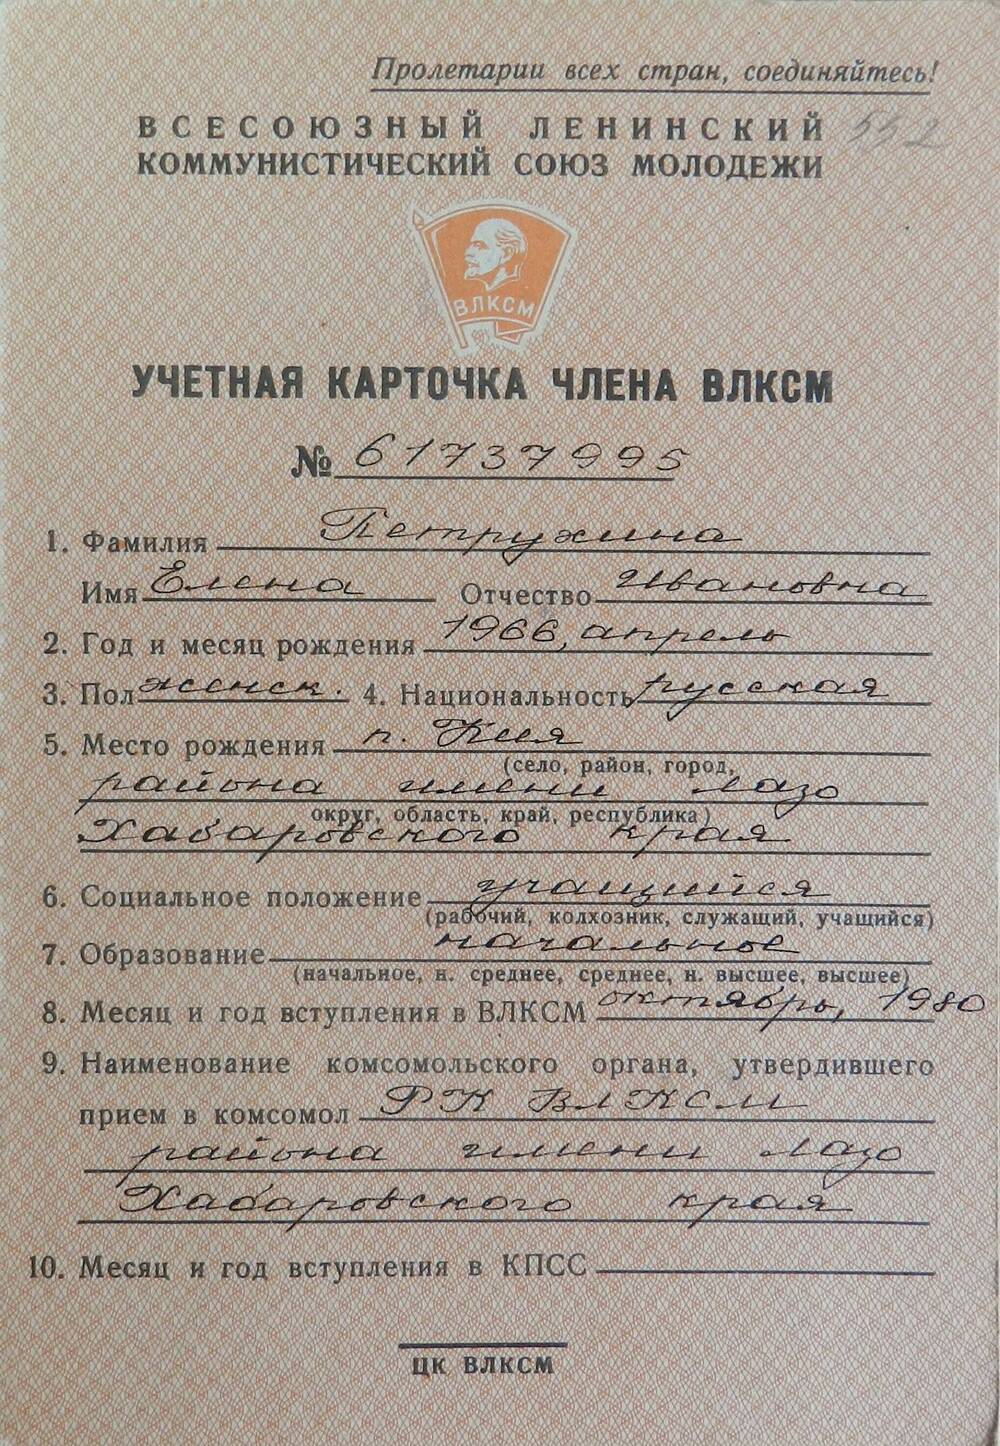 Пролетарии всех стран, соединяйтесь!
ВСЕСОЮЗНЫЙ ЛЕНИНСКИЙ 552
КОММУНИСТИЧЕСКИЙ СОЮЗ МОЛОДЕЖИ
ВЛКСМ
УЧЕТНАЯ КАРТОЧКА ЧЛЕНА ВЛКСМ
№ 61737995
1. Фамилия Петрухина
Имя Елена Отчество Ивановна
2. Год и месяц рождения 1966, апрель
3. Пол женск. 4. Национальность русская
5. Место рождения п. Кия
(село, район, город,
района имени Лазо
округ, область, край, республика)
Хабаровского края
6. Социальное положение учащийся
(рабочий, колхозник, служащий, учащийся)
7. Образование начальное
(начальное, н. среднее, среднее, н. высшее, высшее)
8. Месяц и год вступления в ВЛКСМ октябрь, 1980
9. Наименование комсомольского органа, утвердившего
прием в комсомол РК ВЛКСМ
района имени Лазо
Хабаровского края
10. Месяц и год вступления в КПСС
ЦК ВЛКСМ